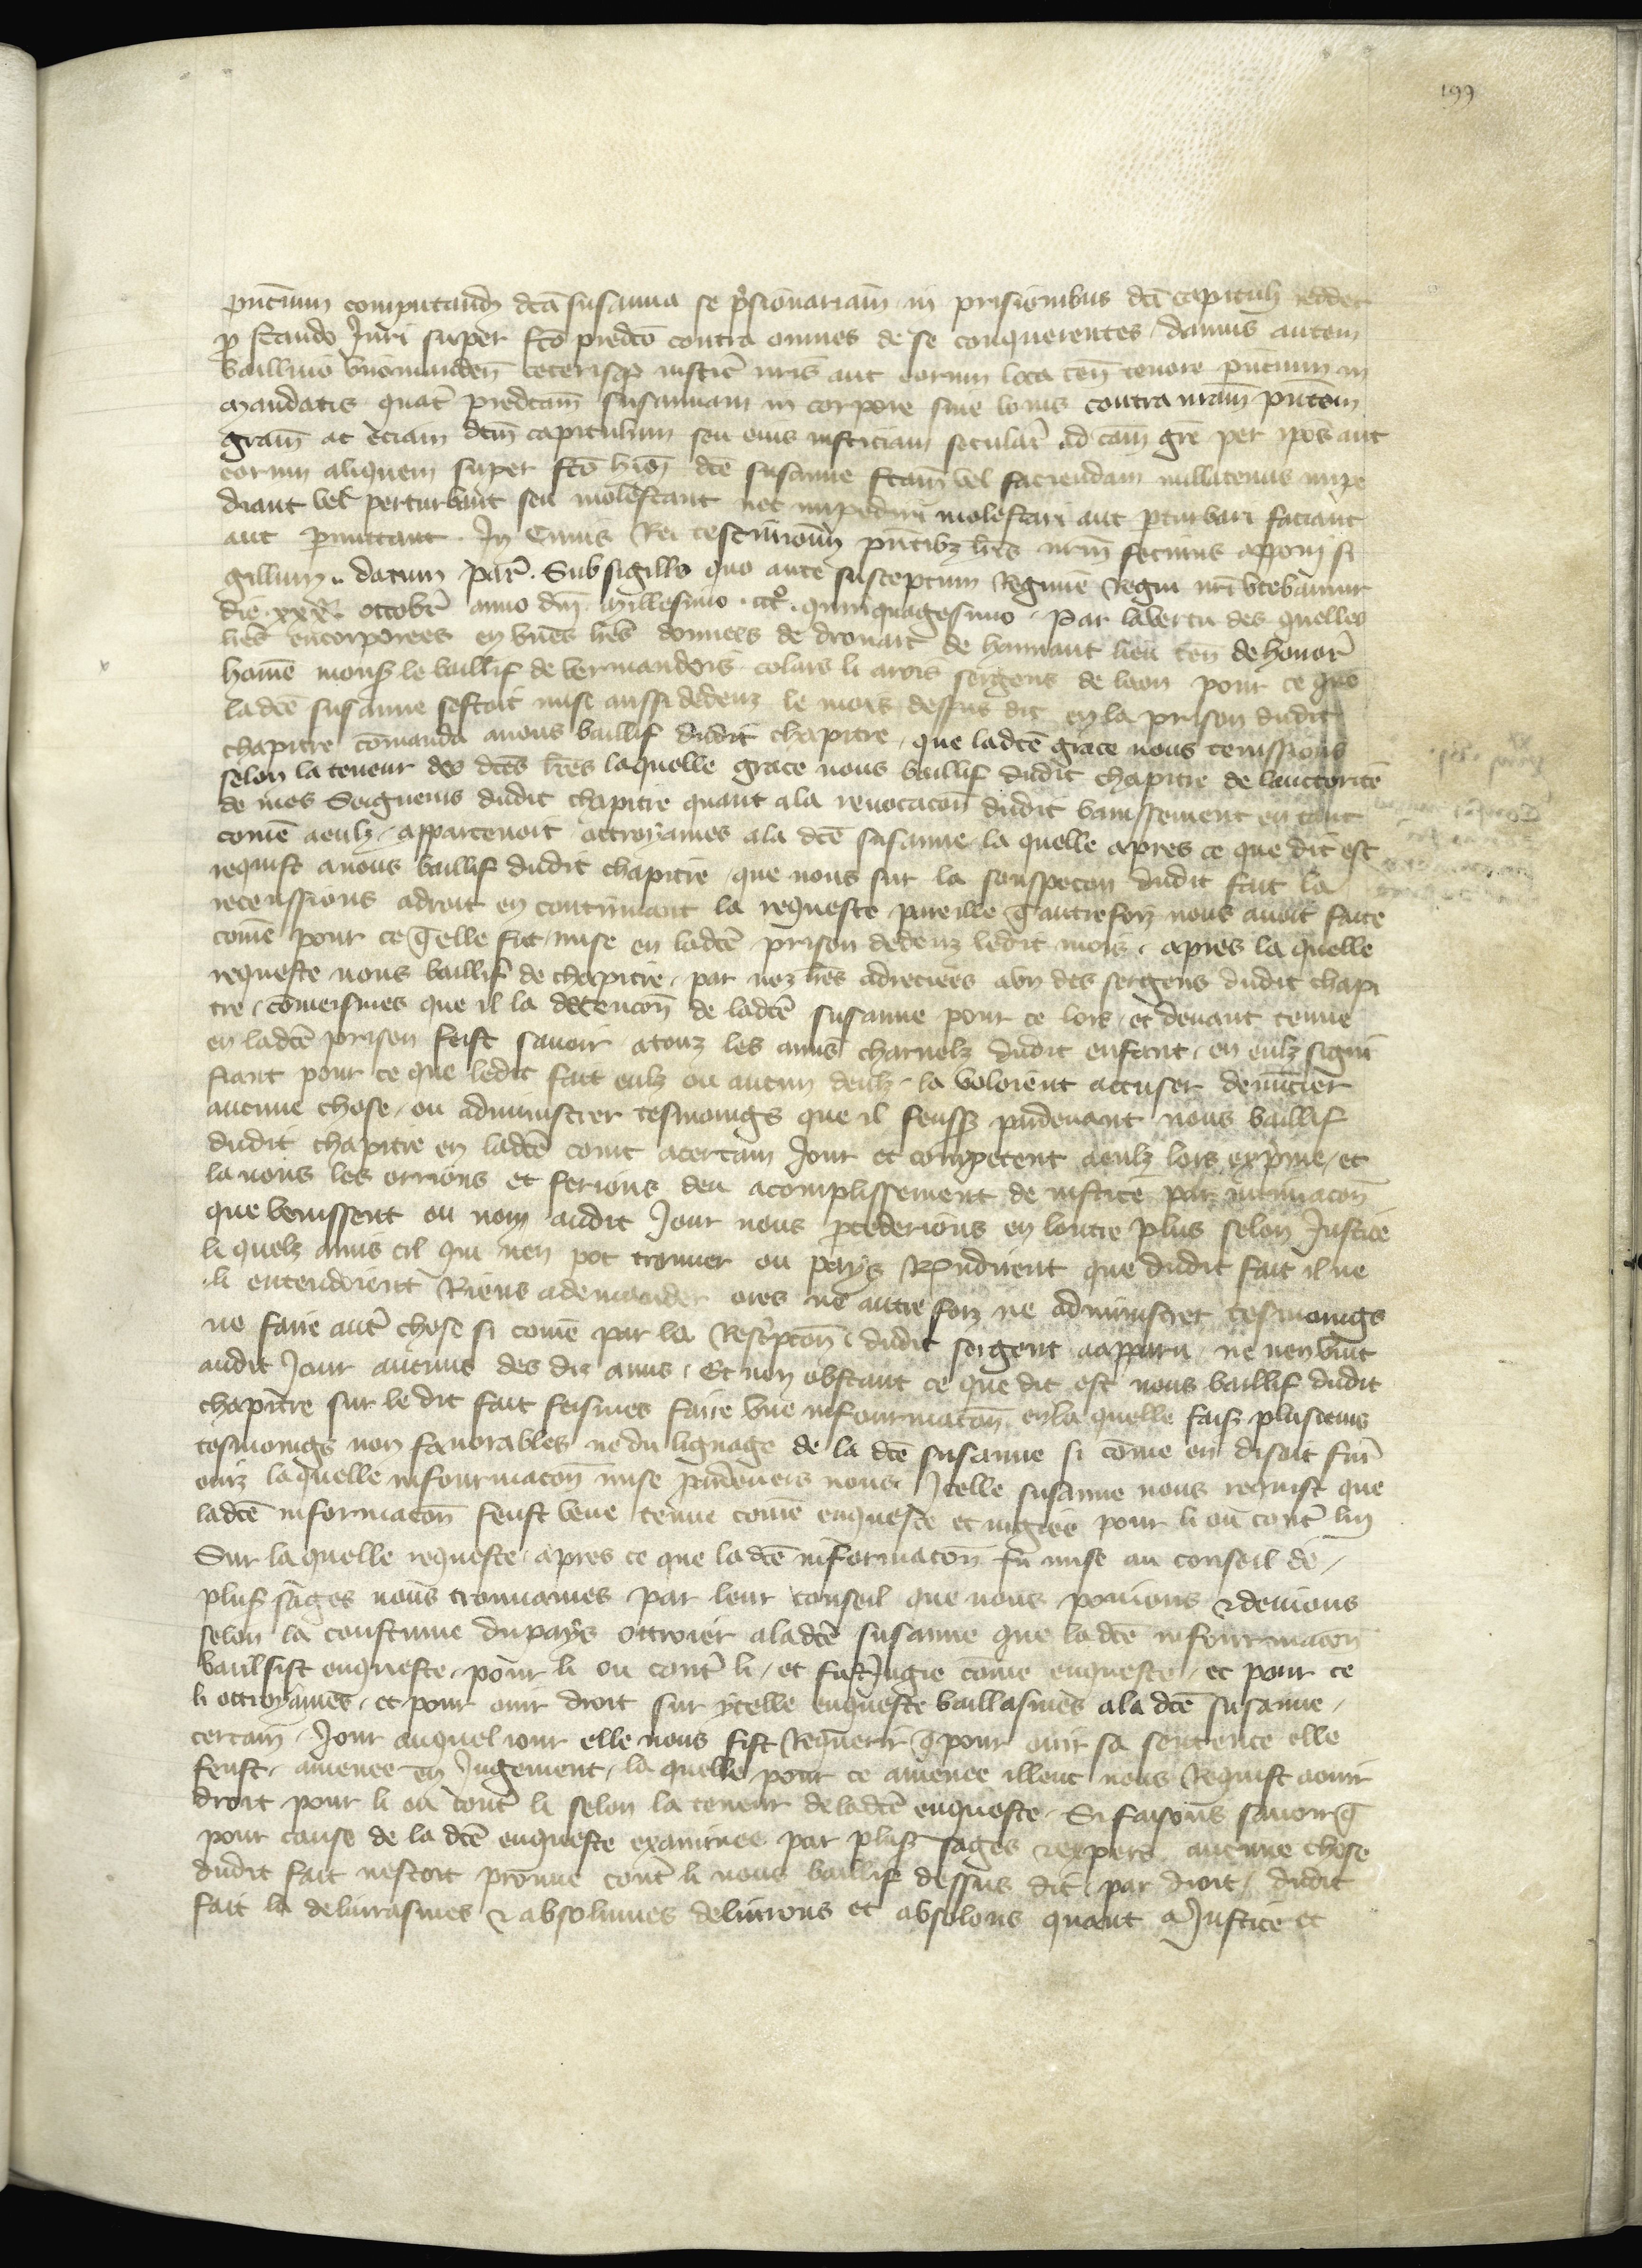 199
pñtium computand dc̃a susanna se p̃sionariam in prisionibus dc̃i capituli redder
p̱ stando Juri super fc̃o predc̃o contra omnes de se conquerentes / damus autem
baillivo viromanden̄ ceterisq iustic̃ nr̃is aut eorum loca ten̄ tenore pñtium in
mandatis quat̃ predc̃am susannam in corpore siue bonis contra nr̃am pñtem
grãm ac eciam dc̃m capitulum seu eius iusticiam secular̃ ad cam̃ gr̃e per ip̃os aut
eorum aliquem super fc̃o hiõi dc̃e susanne fc̃am vel faciendam nullatenus impe
diant vel perturbant seu molestant nec impediri molestari aut p̱turbari faciant
aut p̱mittant . In Cuius Rei testimoniũ pñtibz l̃ris nr̃m fecimus apponi si
gillum .. datum par̃ . Sub sigillo quo ante susceptum Regimẽ Regni nr̃i vtebamur
die xxxᵃ ottobr̃ anno dñi millesimo cccᵒ quinquagesimo . Par la vertu des quelles
l̃res encorporees en vnes l̃res donnees de drouart de hainnaut lieu ten̄ de honor̃
homẽ mons̃ le baillif de vermandois colars li arois sergens de laon pour ce que
ladc̃e susanne sestoit mise aussi dedenz le mois dessus dit en la prison dudit
chapitre cõmanda a nous baillif dudit chapitre / que ladc̃e grace nous tenissions
selon la teneur des dc̃es l̃res laquelle grace nous baillif dudit chapitre de lauctorite
de mes Seigneurs dudit chapitre quant a la reuocacoñ dudit banissement en tant
comẽ a eulz / appartenoit ottroyames a la dc̃e susanne / la quelle apres ce que dit est
requist a nous baillif dudit chapitre / que nous sur la souspecon dudit fait la
receussions a droit en continuant la requeste pareille q̃ autrefoiz nous auoit faite
comẽ pour ce q̃ elle fut mise en ladc̃e prison dedenz ledit mois . apres la quelle
requeste nous baillif de chapitre / par noz l̃res adreciees a vn des sergens dudit chapi
tre / cõmeismes que il la detencoñ de ladc̃e susanne pour ce lors et deuant tenue
en ladc̃e prison feist sauoir a touz les amis charnelz dudit enfant / en eulz signi
fiant pour ce que ledit fait eulz ou aucun deulz / la voloient accuser denũcier
aucune chose / ou administrer tesmoings que il feuss̃ pardeuant nous baillif
dudit chapitre en ladc̃e court a certain Jour et competent a eulz lors exp̃me / et
la nous les orrions et ferions deu acomplissement de iustice par intimacoñ
que venissent ou non audit Jour nous p̱cederions en loutre plus selon Justice
li quelz amis cil qui nen pot trouuer ou pays R̃ndirent que dudit fait il ne
li entendoient Riens a demander ores ne autre foiz ne administrer tesmoings
ne faire aut̃ chose si comẽ par la Rescp̃con̄ dudit sergent a apparu / ne nen vint
audit Jour aucuns des dis amis / Et non obstant ce que dit est nous baillif dudit
chapitre sur le dit fait feismes faire vne infourmacoñ en la quelle fais̃ pluseurs
tesmoings non fauorables ne du lignage de la dc̃e susanne si cõme on disoit fur̃
ouiz laquelle infourmacoñ mise pardeuers nous Icelle susanne nous requist que
ladc̃e informacoñ feust veue tenue comẽ enqueste et iugiee pour li ou cont̃ lui
Sur laquelle requeste / apres ce que ladc̃e informacoñ fu mise au conseil de /
plus̃ sages nous trouuames par leur conseil que nous pouions & deuions
selon la coustume du pays ottroier a ladc̃e susanne que ladc̃e infourmacoñ
vaulsist enqueste / pour li ou cont̃ li / et fut Jugie cõme enqueste / et pour ce
li ottroyames / et pour ouir droit sur ycelle enqueste baillasmes a la dc̃e susanne /
certain Jour auquel iour elle nous fist Requerir q̃ pour ouir sa sentence elle
feust / amenee en Jugement / la quelle pour ce amenee illeuc nous Requist a ouir
droit pour li ou cont̃ li selon la teneur de ladc̃e enqueste / Si faisons sauoir q̃
pour cause de la dc̃e enqueste examinee par plus̃ sages & expers aucune chose
dudit fait nestoit prouue cont̃ li nous baillif dessus dit par droit / dudit
fait la deliurasmes & absolumes deliurons et absolons quant a Justice et